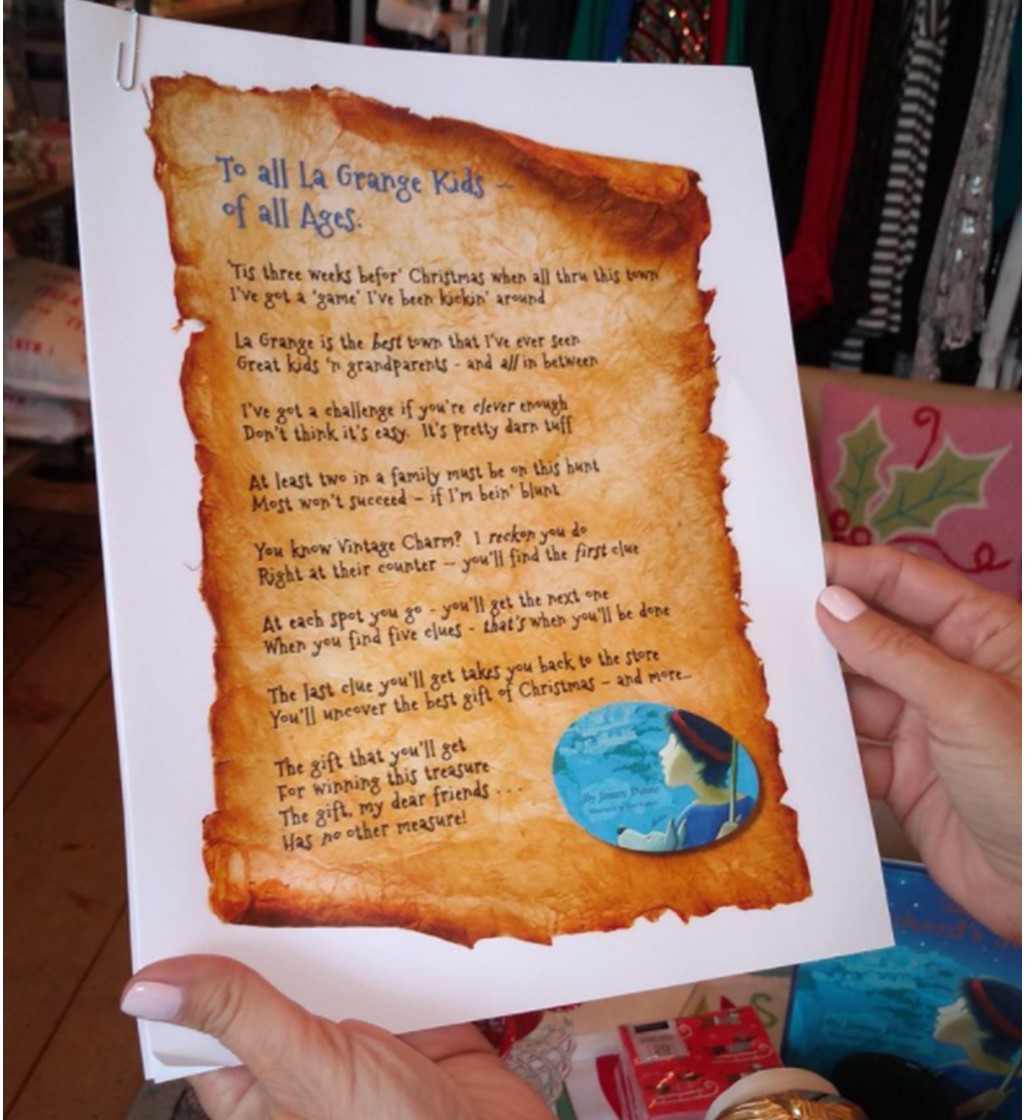 To all La Grange Kids –
of all Ages.
'Tis three weeks befor' Christmas when all thru this town
I've got a 'game' I've been kickin' around
La Grange is the best town that I've ever seen
Great kids 'n grandparents - and all in between
I've got a challenge if you're clever enough
Don't think it's easy. It's pretty darn tuff
At least two in a family must be on this hunt
Most won't succeed – if I'm bein' blunt
You know Vintage Charm? I reckon you do
Right at their counter – you'll find the first clue
At each spot you go - you'll get the next one
When you find five clues - that's when you'll be done
The last clue you'll get takes you back to the store
You'll uncover the best gift of Christmas – and more...
The gift that you'll get
For winning this treasure
The gift, my dear friends . . .
Has no other measure!
By